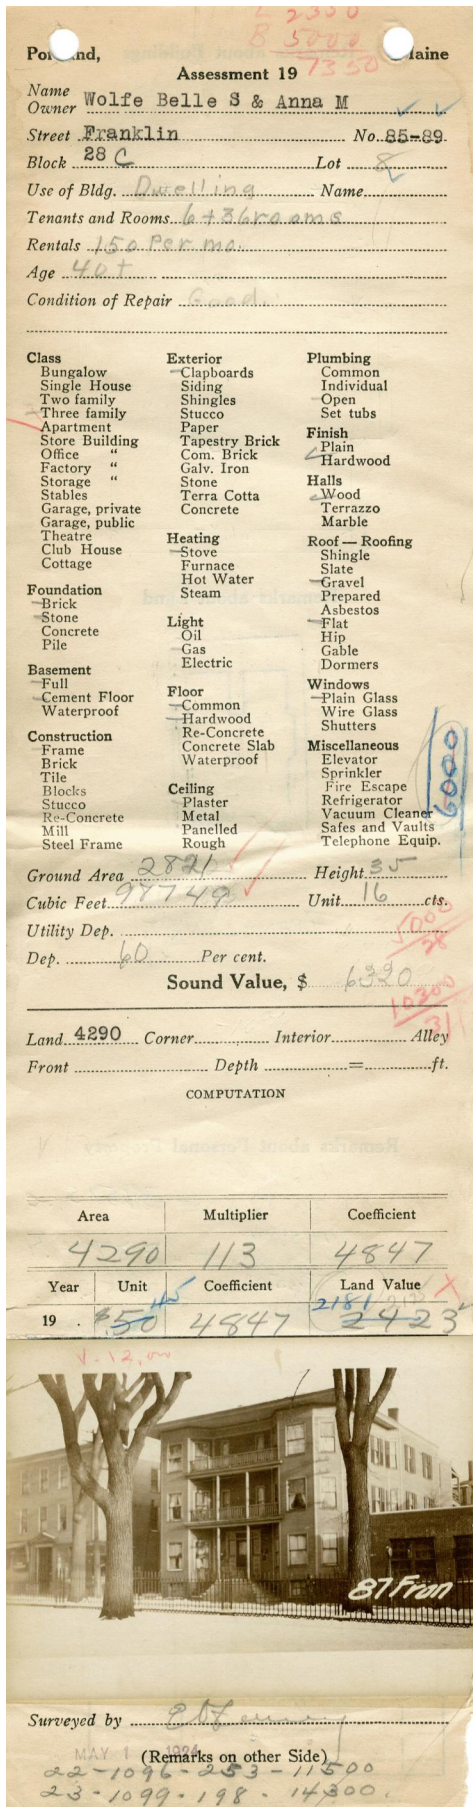 L 2350
B 5000
7350
Portland, Maine
Assessment 19
Name
Owner Wolfe Belle S & Anna M
Street Franklin No. 85-89
Block 28 C Lot 8
Use of Bldg. Dwelling Name
Tenants and Rooms 6+36 rooms
Rentals 150 Per mo.
Age 40+
Condition of Repair Good.
Class
Bungalow
Single House
Two family
Three family
Apartment
Store Building
Office "
Factory "
Storage "
Stables
Garage, private
Garage, public
Theatre
Club House
Cottage
Foundation
Brick
Stone
Concrete
Pile
Basement
Full
Cement Floor
Waterproof
Construction
Frame
Brick
Tile
Blocks
Stucco
Re-Concrete
Mill
Steel Frame
Exterior
Clapboards
Siding
Shingles
Stucco
Paper
Tapestry Brick
Com. Brick
Galv. Iron
Stone
Terra Cotta
Concrete
Heating
Stove
Furnace
Hot Water
Steam
Light
Oil
Gas
Electric
Floor
Common
Hardwood
Re-Concrete
Concrete Slab
Waterproof
Ceiling
Plaster
Metal
Panelled
Rough
Plumbing
Common
Individual
Open
Set tubs
Finish
Plain
Hardwood
Halls
Wood
Terrazzo
Marble
Roof — Roofing
Shingle
Slate
Gravel
Prepared
Asbestos
Flat
Hip
Gable
Dormers
Windows
Plain Glass
Wire Glass
Shutters
Miscellaneous
Elevator
Sprinkler
Fire Escape
Refrigerator
Vacuum Cleaner
Safes and Vaults
Telephone Equip.
6000
Ground Area 2821 Height 35
Cubic Feet 98749 Unit 16 cts.
Utility Dep.
5000
28
Dep. 60 Per cent.
Sound Value, $ 6320
10300
31
Land 4290 Corner Interior Alley
Front Depth = ft.
COMPUTATION
Area Multiplier Coefficient
4290 113 4847
Year Unit Coefficient Land Value
45 2181
19 . $.50 4847 2423
V-12,000
87 Fran
Surveyed by
MAY 1 1924
(Remarks on other Side)
22-1096-253-11500
23-1099-198-14300.